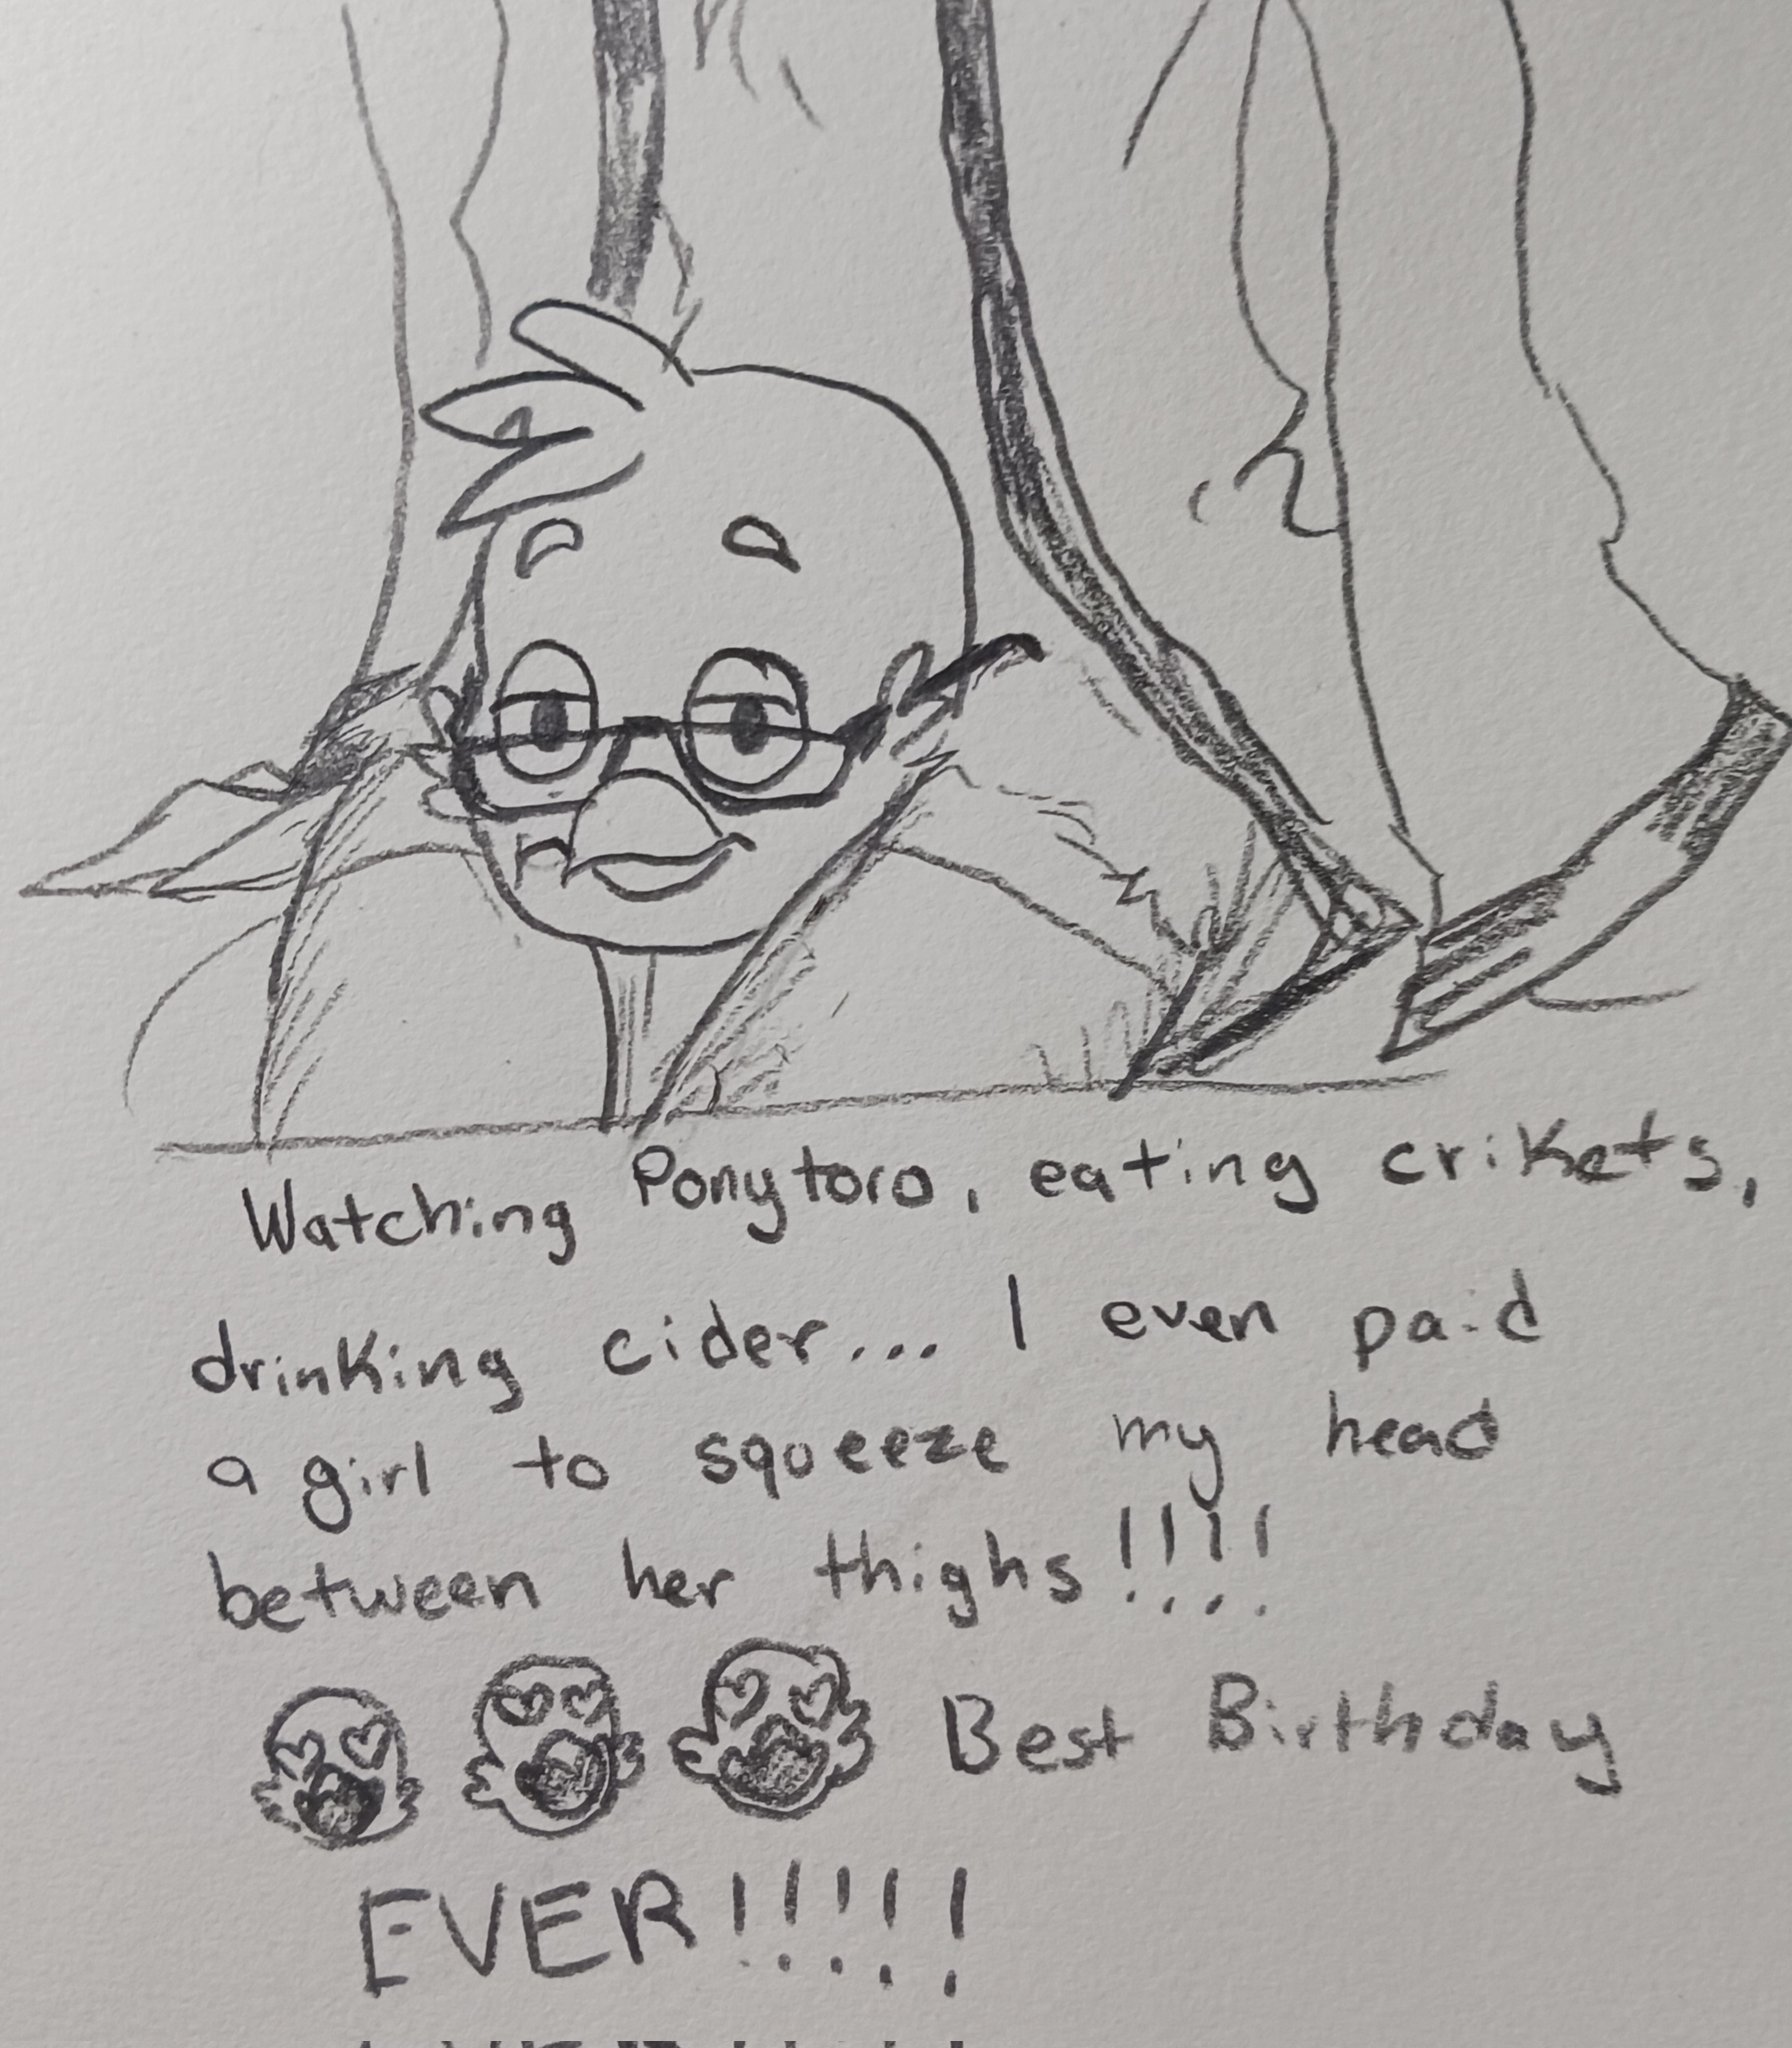 Watching Ponytoro, eating crikets,
drinking cider... I even paid
a girl to squeeze my head
between her thighs!!!!
Best Birthday
EVER!!!!!